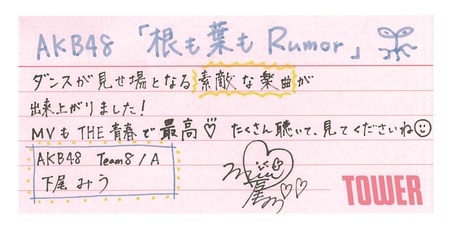 AKB48 「根も葉もRumor」
ダンスが見せ場となる素敵な楽曲が
出来上がりました!
MVもTHE青春で最高♡ たくさん聴いて、見てくださいね☺
AKB48 Team8/A
下尾みう
TOWER